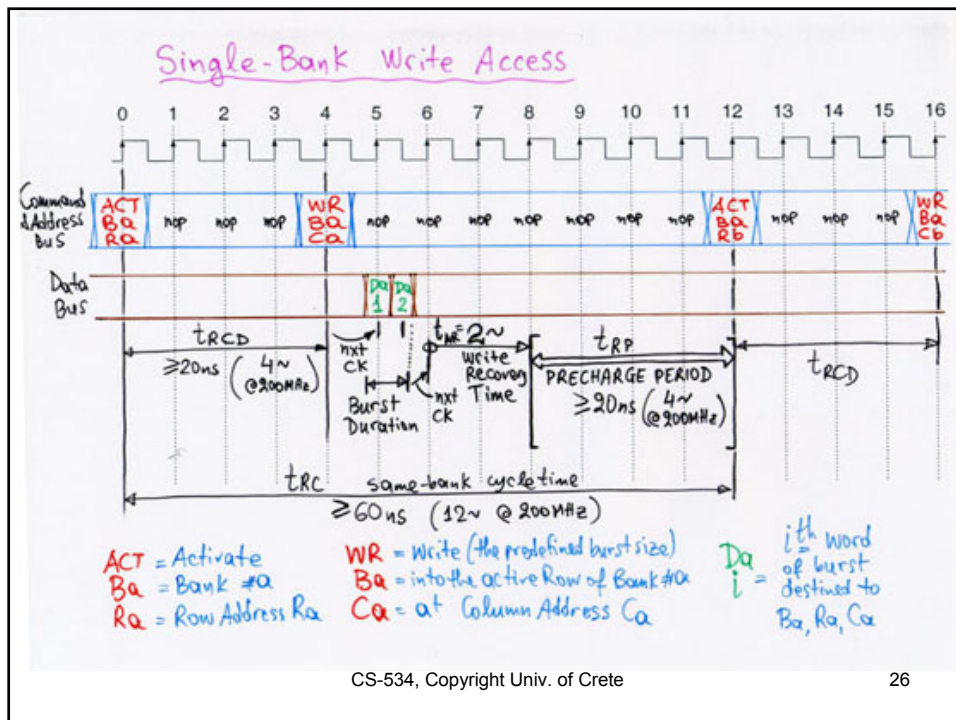 Single-Bank Write Access
0 1 2 3 4 5 6 7 8 9 10 11 12 13 14 15 16
Command
&Address
Bus
ACT
Ba
Ra
nop nop nop
WR
Ba
Ca
nop nop nop nop nop nop nop
ACT
Ba
Rb
nop nop nop
WR
Ba
Cb
Data
Bus
Da
1
Da
2
tRCD
≥20ns (4~ @200MHz)
nxt
CK
Burst
Duration
nxt
CK
tWR=2~
Write
Recovery
Time
tRP
PRECHARGE PERIOD
≥20ns (4~ @200MHz)
tRCD
tRC same-bank cycle time
≥60ns (12~ @ 200MHz)
ACT = Activate
Ba = Bank #a
Ra = Row Address Ra
WR = Write (the predefined burst size)
Ba = into the active Row of Bank #a
Ca = at Column Address Ca
Da
i =
ith word
of burst
destined to
Ba, Ra, Ca
CS-534, Copyright Univ. of Crete 26